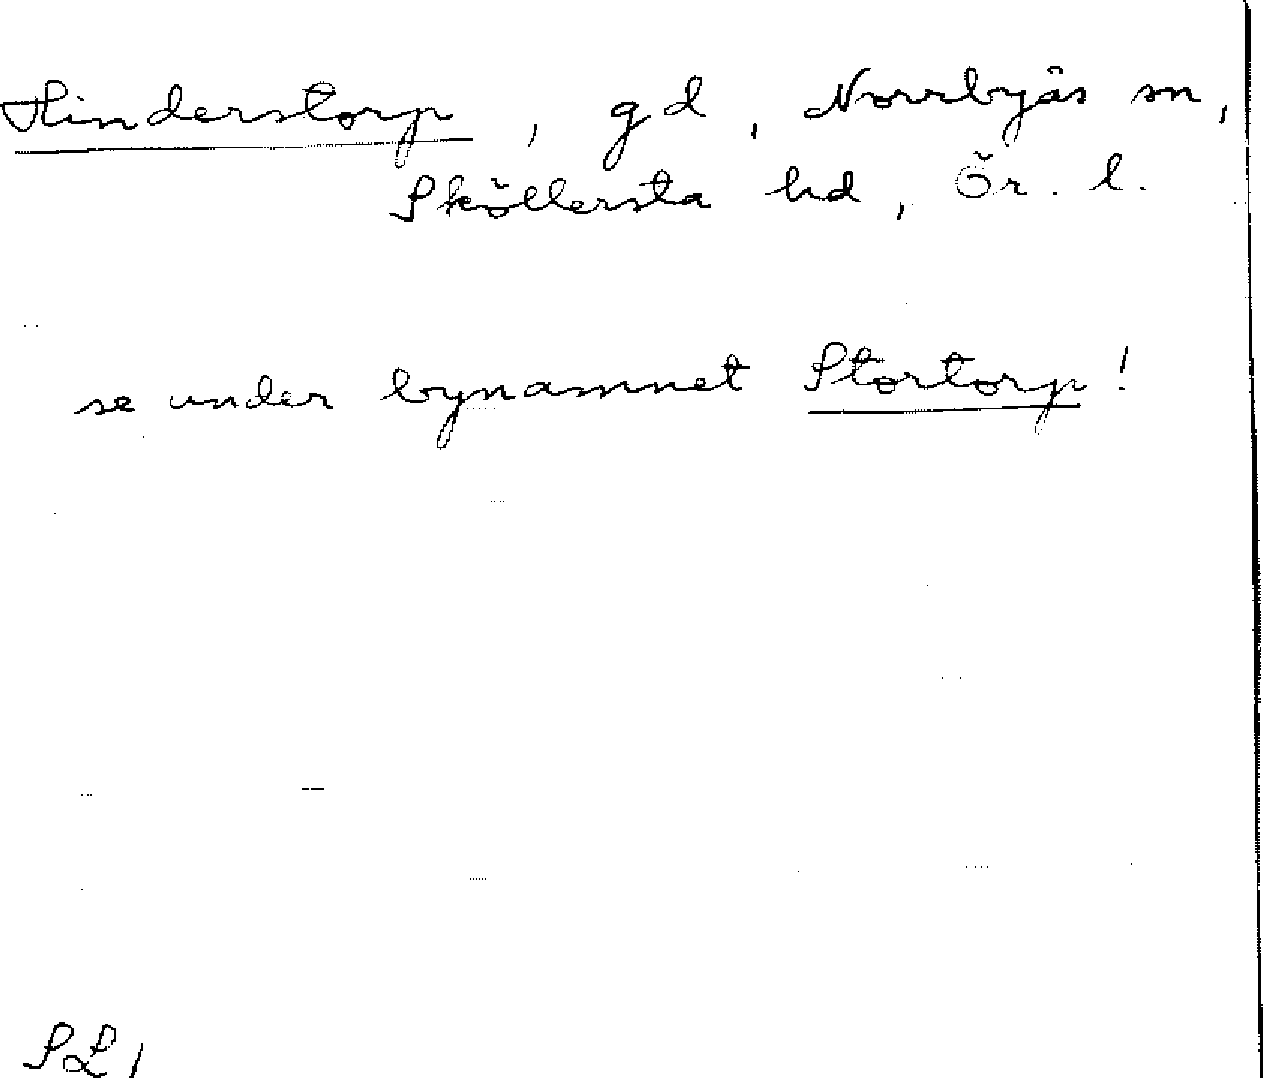 Hinderstorp, gd, Norrbyås sn,
Sköllersta hd, Ör. l.
se under bynamnet Stortorp!
SL,